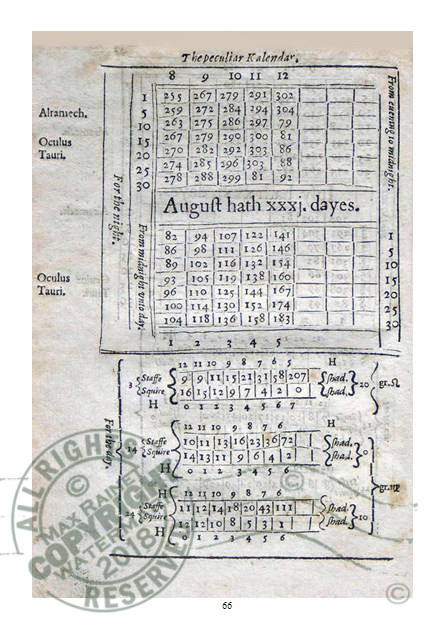 The peculiar Kalendar.
8 9 10 11 12
Alramech.
Oculus
Tauri.
1 255 267 279 291 302
5 259 272 284 294 304
10 263 275 286 297 79
15 267 279 290 300 81
20 270 282 292 303 86
25 274 285 296 303 88
30 278 288 299 81 92
For the night.
From evening to midnight.
August hath xxxj. dayes.
From midnight unto day.
Oculus
Tauri.
82 94 107 122 141 1
86 98 111 126 146 5
89 102 116 132 154 10
93 105 119 138 160 15
96 110 125 144 167 20
100 114 130 152 174 25
104 118 136 158 183 30
1 2 3 4 5
12 11 10 9 8 7 6 5 H
3 Staffe 9 9 11 15 21 31 58 207 shad. 20 gr. ♌
Squire 16 15 12 9 7 4 2 0 shad.
H 0 1 2 3 4 5 6 7
For the day.
12 11 10 9 8 7 6 H
14 Staffe 10 11 13 16 23 36 72 shad. 0
Squire 14 13 11 9 6 4 2 shad.
H 0 1 2 3 4 5 6
gr. ♍
12 11 10 9 8 7 6
24 Staffe 11 12 14 18 20 43 111 shad. 10
Squire 12 12 10 8 5 3 1 shad.
H 0 1 2 3 4 5 6
ALL RIGHTS
MAX RAINEY
COPYRIGHT
WATERMARK
2018
RESERVED
66